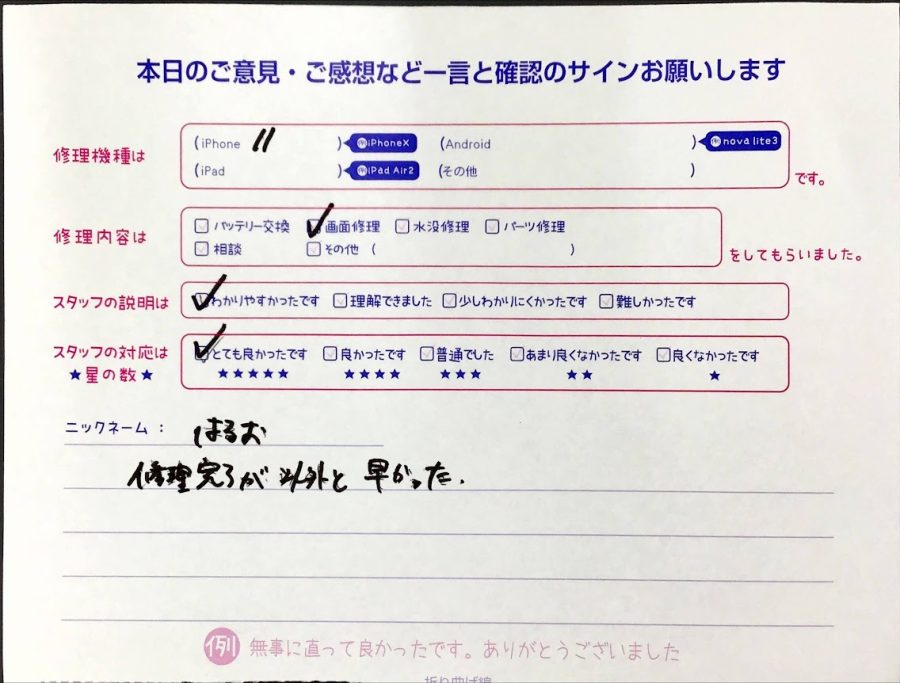 本日のご意見・ご感想など一言と確認のサインお願いします
修理機種は
(iPhone 11 ) iPhoneX (Android ) nova lite3
(iPad ) iPad Air2 (その他 )
です。
修理内容は
バッテリー交換 画面修理 水没修理 パーツ修理
相談 その他 ( )
をしてもらいました。
スタッフの説明は わかりやすかったです 理解できました 少しわかりにくかったです 難しかったです
スタッフの対応は とても良かったです 良かったです 普通でした あまり良くなかったです 良くなかったです
★星の数★ ★★★★★ ★★★★ ★★★ ★★ ★
ニックネーム: はるお
修理完了が以外と早かった.
例 無事に直って良かったです。ありがとうございました
折り曲げ線